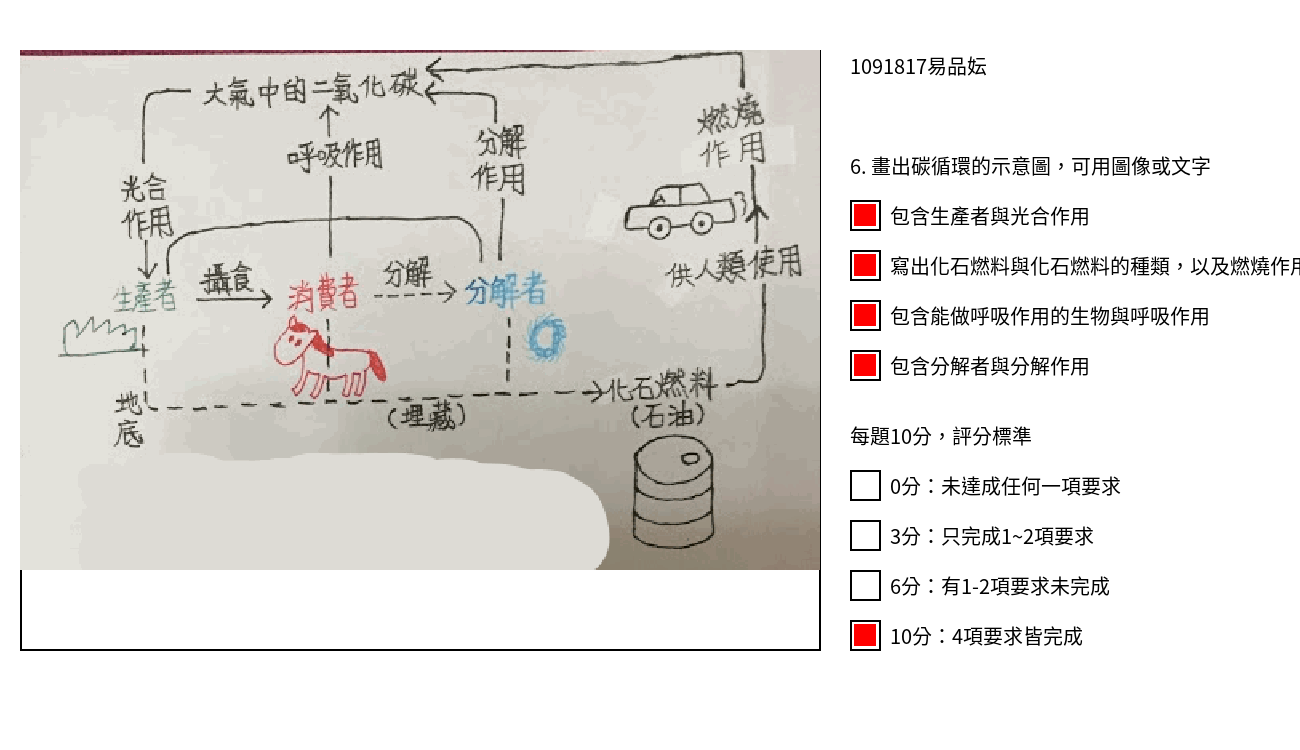 大氣中的二氧化碳
燃燒
作用
呼吸作用
分解
作用
光合
作用
供人類使用
攝食
分解
生產者
消費者
分解者
化石燃料
(石油)
地
底
(埋藏)
1091817易品妘
6. 畫出碳循環的示意圖，可用圖像或文字
包含生產者與光合作用
寫出化石燃料與化石燃料的種類，以及燃燒作用
包含能做呼吸作用的生物與呼吸作用
包含分解者與分解作用
每題10分，評分標準
0分：未達成任何一項要求
3分：只完成1~2項要求
6分：有1-2項要求未完成
10分：4項要求皆完成